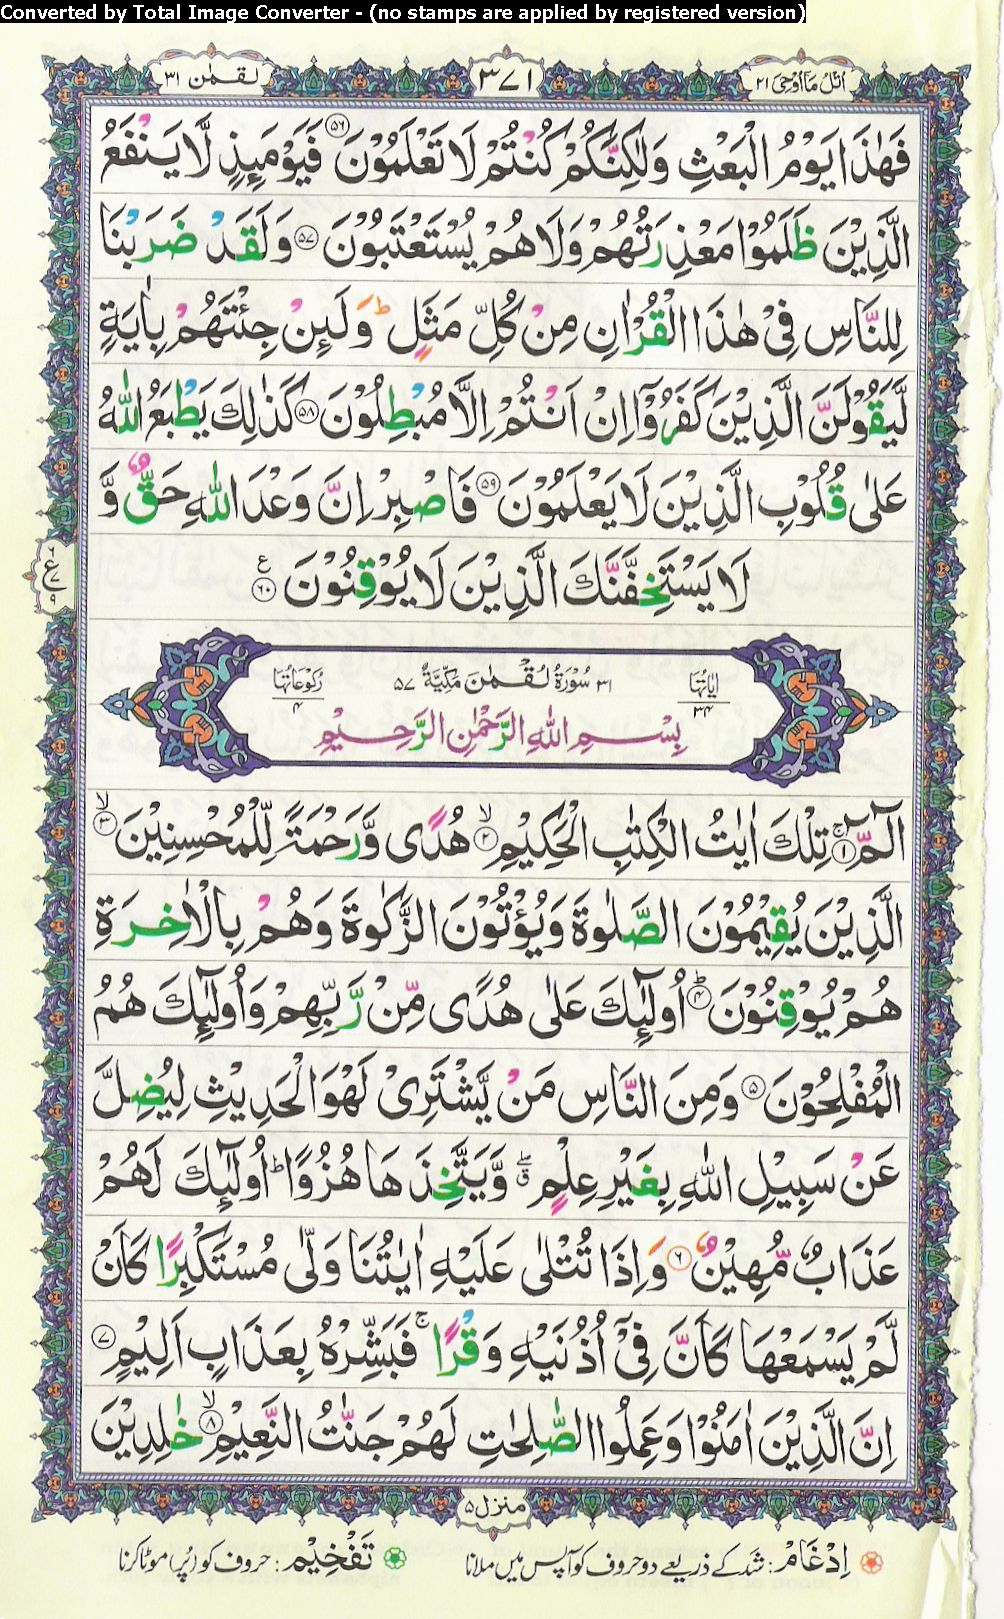 Converted by Total Image Converter - (no stamps are applied by registered version)
اتل ما اوحی ۲۱
۳۷۱
لقمٰن ۳۱
فَهٰذَا يَوْمُ الْبَعْثِ وَلٰكِنَّكُمْ كُنْتُمْ لَا تَعْلَمُوْنَ ﴿۵۶﴾ فَيَوْمَىِٕذٍ لَّا يَنْفَعُ
الَّذِيْنَ ظَلَمُوْا مَعْذِرَتُهُمْ وَلَا هُمْ يُسْتَعْتَبُوْنَ ﴿۵۷﴾ وَلَقَدْ ضَرَبْنَا
لِلنَّاسِ فِىْ هٰذَا الْقُرْاٰنِ مِنْ كُلِّ مَثَلٍ ؕ وَلَىِٕنْ جِئْتَهُمْ بِاٰيَةٍ
لَّيَقُوْلَنَّ الَّذِيْنَ كَفَرُوْۤا اِنْ اَنْتُمْ اِلَّا مُبْطِلُوْنَ ﴿۵۸﴾ كَذٰلِكَ يَطْبَعُ اللّٰهُ
عَلٰى قُلُوْبِ الَّذِيْنَ لَا يَعْلَمُوْنَ ﴿۵۹﴾ فَاصْبِرْ اِنَّ وَعْدَ اللّٰهِ حَقٌّ وَّ
لَا يَسْتَخِفَّنَّكَ الَّذِيْنَ لَا يُوْقِنُوْنَ ﴿۶۰﴾ ع
۶ ع ۷ ۹
اٰيَاتُهَا ۳۴
۳۱ سُوْرَةُ لُقْمٰنَ مَكِّيَّةٌ ۵۷
رُكُوْعَاتُهَا ۴
بِسْمِ اللّٰهِ الرَّحْمٰنِ الرَّحِيْمِ
الٓمّٓ ﴿۱﴾ ۚ تِلْكَ اٰيٰتُ الْكِتٰبِ الْحَكِيْمِ ﴿۲﴾ ۙ هُدًى وَّرَحْمَةً لِّلْمُحْسِنِيْنَ ﴿۳﴾ ۙ
الَّذِيْنَ يُقِيْمُوْنَ الصَّلٰوةَ وَيُؤْتُوْنَ الزَّكٰوةَ وَهُمْ بِالْاٰخِرَةِ
هُمْ يُوْقِنُوْنَ ﴿۴﴾ ؕ اُولٰٓىِٕكَ عَلٰى هُدًى مِّنْ رَّبِّهِمْ وَاُولٰٓىِٕكَ هُمُ
الْمُفْلِحُوْنَ ﴿۵﴾ وَمِنَ النَّاسِ مَنْ يَّشْتَرِىْ لَهْوَ الْحَدِيْثِ لِيُضِلَّ
عَنْ سَبِيْلِ اللّٰهِ بِغَيْرِ عِلْمٍ ۖق وَّيَتَّخِذَهَا هُزُوًا ؕ اُولٰٓىِٕكَ لَهُمْ
عَذَابٌ مُّهِيْنٌ ﴿۶﴾ وَاِذَا تُتْلٰى عَلَيْهِ اٰيٰتُنَا وَلّٰى مُسْتَكْبِرًا كَاَنْ
لَّمْ يَسْمَعْهَا كَاَنَّ فِىْۤ اُذُنَيْهِ وَقْرًا ۚ فَبَشِّرْهُ بِعَذَابٍ اَلِيْمٍ ﴿۷﴾
اِنَّ الَّذِيْنَ اٰمَنُوْا وَعَمِلُوا الصّٰلِحٰتِ لَهُمْ جَنّٰتُ النَّعِيْمِ ﴿۸﴾ ۙ خٰلِدِيْنَ
منزل ۵
اِدْغَام: شد کے ذریعے دو حروف کو آپس میں ملانا
تَفْخِیْم: حروف کو (پُر) موٹا کرنا